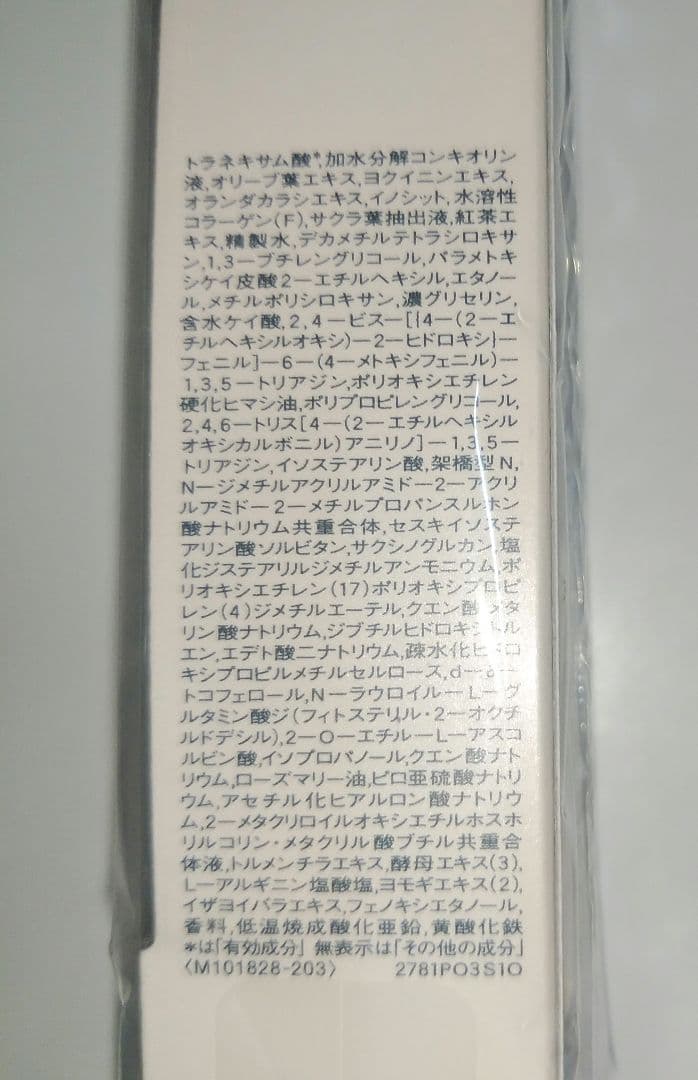 トラネキサム酸*,加水分解コンキオリン
液,オリーブ葉エキス,ヨクイニンエキス,
オランダカラシエキス,イノシット,水溶性
コラーゲン(F),サクラ葉抽出液,紅茶エ
キス,精製水,デカメチルテトラシロキサ
ン,1,3ーブチレングリコール,パラメトキ
シケイ皮酸2ーエチルヘキシル,エタノー
ル,メチルポリシロキサン,濃グリセリン,
含水ケイ酸,2,4ービスー[{4ー(2ーエ
チルヘキシルオキシ)ー2ーヒドロキシ}ー
フェニル]ー6ー(4ーメトキシフェニル)ー
1,3,5ートリアジン,ポリオキシエチレン
硬化ヒマシ油,ポリプロピレングリコール,
2,4,6ートリス[4ー(2ーエチルヘキシル
オキシカルボニル)アニリノ]ー1,3,5ー
トリアジン,イソステアリン酸,架橋型N,
Nージメチルアクリルアミドー2ーアクリ
ルアミドー2ーメチルプロパンスルホン
酸ナトリウム共重合体,セスキイソステ
アリン酸ソルビタン,サクシノグルカン,塩
化ジステアリルジメチルアンモニウム,ポ
リオキシエチレン(17)ポリオキシプロピ
レン(4)ジメチルエーテル,クエン酸,メタ
リン酸ナトリウム,ジブチルヒドロキシトル
エン,エデト酸二ナトリウム,疎水化ヒドロ
キシプロピルメチルセルロース,dーδー
トコフェロール,NーラウロイルーLーグ
ルタミン酸ジ(フィトステリル・2ーオクチ
ルドデシル),2ーOーエチルーLーアスコ
ルビン酸,イソプロパノール,クエン酸ナト
リウム,ローズマリー油,ピロ亜硫酸ナトリ
ウム,アセチル化ヒアルロン酸ナトリウ
ム,2ーメタクリロイルオキシエチルホスホ
リルコリン・メタクリル酸ブチル共重合
体液,トルメンチラエキス,酵母エキス(3),
Lーアルギニン塩酸塩,ヨモギエキス(2),
イザヨイバラエキス,フェノキシエタノール,
香料,低温焼成酸化亜鉛,黄酸化鉄
*は「有効成分」 無表示は「その他の成分」
〈M101828-203〉 2781PO3S1O